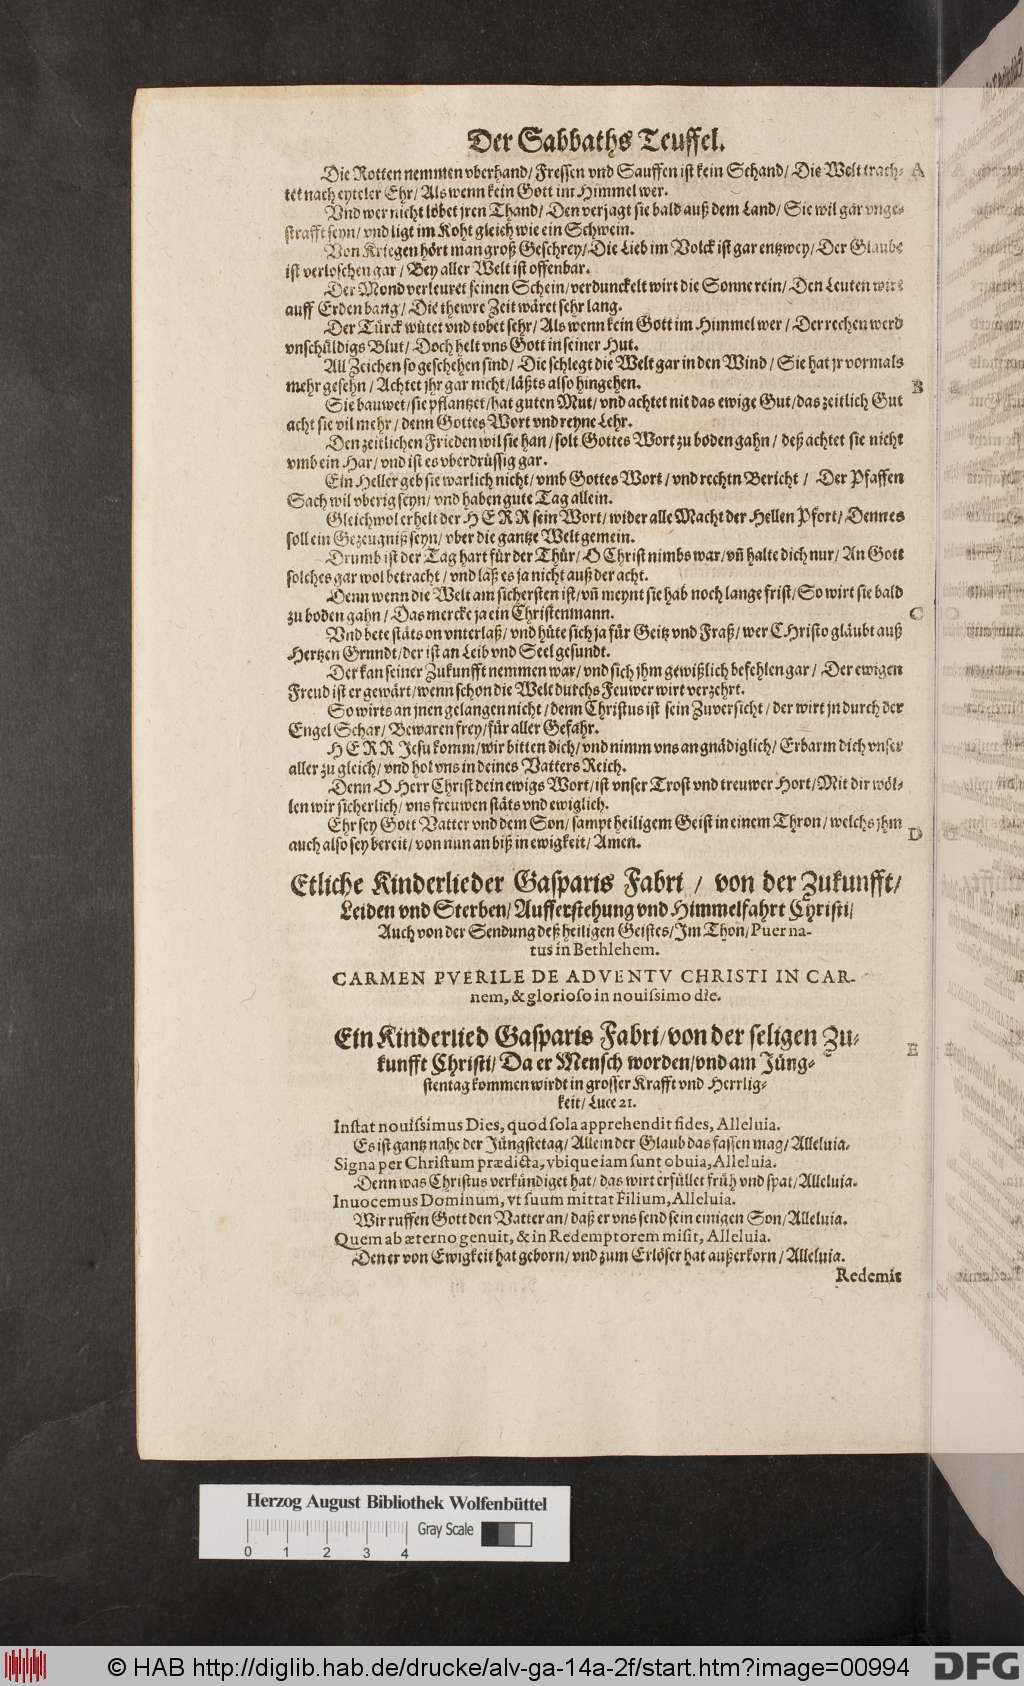 Der Sabbaths Teuffel.
Die Rotten nemmen vberhand/ Fressen vnd Sauffen ist kein Schand/ Die Welt trach- A
tet nach eyteler Ehr/ Als wenn kein Gott im Himmel wer.
Vnd wer nicht lobet jren Thand/ Den verjagt sie bald auß dem Land/ Sie wil gar vnge-
strafft seyn/ vnd ligt im Koht gleich wie ein Schwein.
Von Kriegen hört man groß Geschrey/ Die Lieb im Volck ist gar entzwey/ Der Glaube
ist verloschen gar/ Bey aller Welt ist offenbar.
Der Mond verleuret seinen Schein/ verdunckelt wirt die Sonne rein/ Den Leuten wirt
auff Erden bang/ Die thewre Zeit wäret sehr lang.
Der Türck wütet vnd tobet sehr/ Als wenn kein Gott im Himmel wer/ Der rechen werd
vnschüldigs Blut/ Doch helt vns Gott in seiner Hut.
All Zeichen so geschehen sind/ Die schlegt die Welt gar in den Wind/ Sie hat jr vormals
mehr gesehn/ Achtet jhr gar nicht/ läßts also hingehen. B
Sie bauwet/ sie pflantzet/ hat guten Mut/ vnd achtet nit das ewige Gut/ das zeitlich Gut
acht sie vil mehr/ denn Gottes Wort vnd reyne Lehr.
Den zeitlichen Frieden wil sie han/ solt Gottes Wort zu boden gahn/ deß achtet sie nicht
vmb ein Har/ vnd ist es vberdrüssig gar.
Ein Heller geb sie warlich nicht/ vmb Gottes Wort/ vnd rechtn Bericht/ Der Pfaffen
Sach wil vberig seyn/ vnd haben gute Tag allein.
Gleichwol erhelt der HERR sein Wort/ wider alle Macht der Hellen Pfort/ Denn es
soll ein Gezeugniß seyn/ vber die gantze Welt gemein.
Drumb ist der Tag hart für der Thür/ O Christ nimbs war/ vñ halte dich nur/ An Gott
solches gar wol betracht/ vnd läß es ja nicht auß der acht.
Denn wenn die Welt am sichersten ist/ vñ meynt sie hab noch lange frist/ So wirt sie bald
zu boden gahn/ Das mercke ja ein Christenmann. C
Vnd bete stäts on vnterlaß/ vnd hüte sich ja für Geitz vnd Fraß/ wer CHristo gläubt auß
Hertzen Grundt/ der ist an Leib vnd Seel gesundt.
Der kan seiner Zukunfft nemmen war/ vnd sich jhm gewißlich befehlen gar/ Der ewigen
Freud ist er gewärt/ wenn schon die Welt durchs Feuwer wirt verzehrt.
So wirts an jnen gelangen nicht/ denn Christus ist sein Zuversicht/ der wirt jn durch der
Engel Schar/ Bewaren frey/ für aller Gefahr.
HERR Jesu komm/ wir bitten dich/ vnd nimm vns an gnädiglich/ Erbarm dich vnser
aller zu gleich/ vnd hol vns in deines Vatters Reich.
Denn O Herr Christ dein ewigs Wort/ ist vnser Trost vnd treuwer Hort/ Mit dir wöl-
len wir sicherlich/ vns freuwen stäts vnd ewiglich.
Ehr sey Gott Vatter vnd dem Son/ sampt heiligem Geist in einem Thron/ welchs jhm D
auch also sey bereit/ von nun an biß in ewigkeit/ Amen.
Etliche Kinderlieder Gasparis Fabri/ von der Zukunfft/
Leiden vnd Sterben/ Aufferstehung vnd Himmelfahrt Christi/
Auch von der Sendung deß heiligen Geistes/ Im Thon/ Puer na-
tus in Bethlehem.
CARMEN PVERILE DE ADVENTV CHRISTI IN CAR-
nem, & glorioso in nouissimo die.
Ein Kinderlied Gasparis Fabri/ von der seligen Zu-
kunfft Christi/ Da er Mensch worden/ vnd am Jüng- E
stentag kommen wirdt in grosser Krafft vnd Herrlig-
keit/ Luce 21.
Instat nouissimus Dies, quod sola apprehendit fides, Alleluia.
Es ist gantz nahe der Jüngstetag/ Allein der Glaub das fassen mag/ Alleluia.
Signa per Christum prædicta, vbique iam sunt obuia, Alleluia.
Denn was Christus verkündiget hat/ das wirt erfüllet früh vnd spat/ Alleluia.
Inuocemus Dominum, vt suum mittat Filium, Alleluia.
Wir ruffen Gott den Vatter an/ daß er vns send sein einigen Son/ Alleluia.
Quem ab æterno genuit, & in Redemptorem misit, Alleluia.
Den er von Ewigkeit hat geborn/ vnd zum Erlöser hat außerkorn/ Alleluia.
Redemit
Herzog August Bibliothek Wolfenbüttel
Gray Scale
0 1 2 3 4
© HAB http://diglib.hab.de/drucke/alv-ga-14a-2f/start.htm?image=00994 DFG